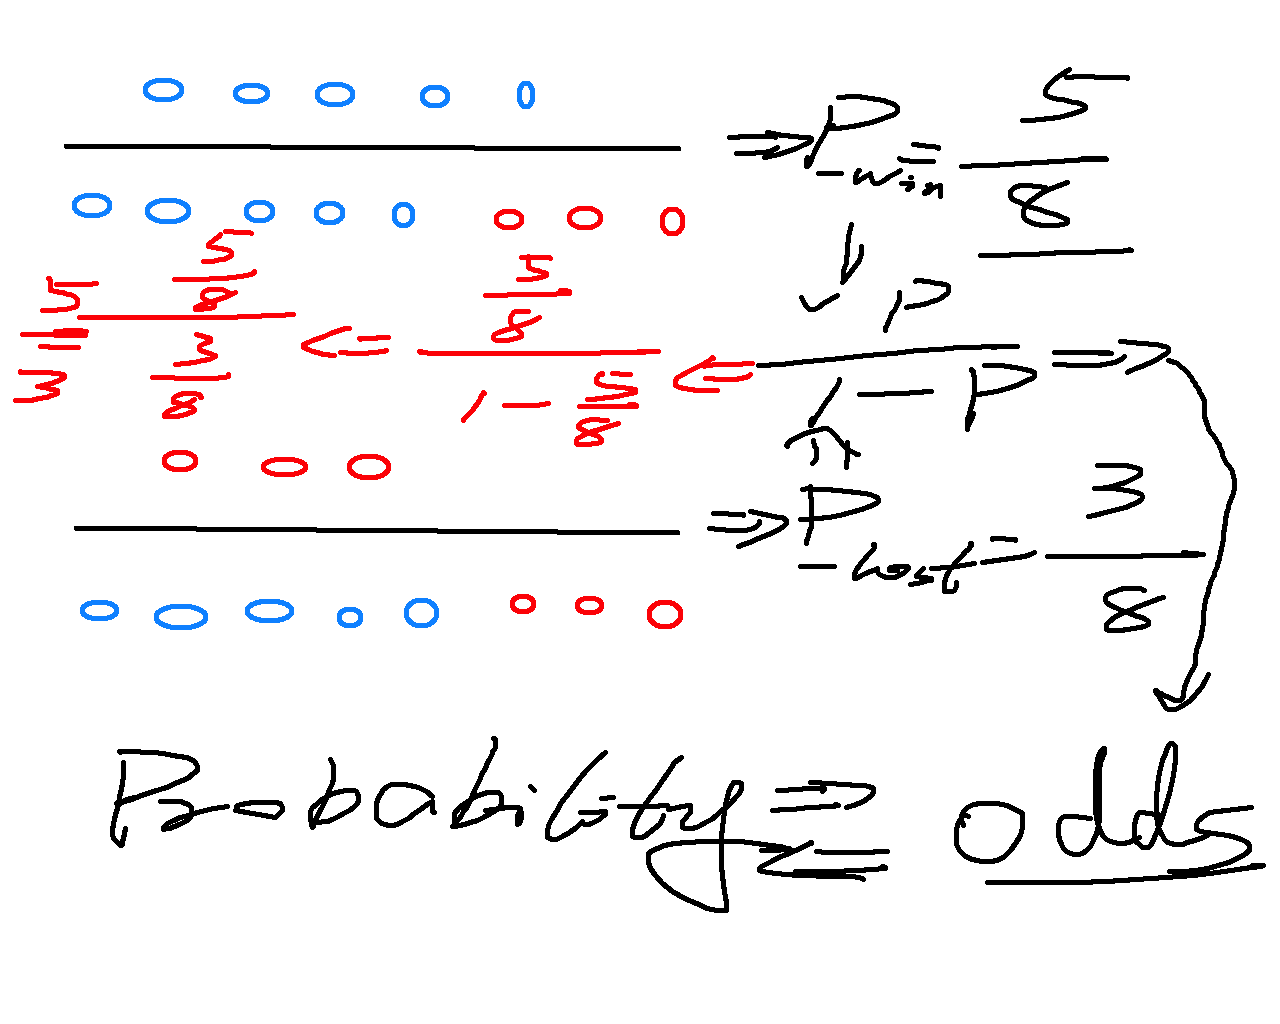 ⇒ P_win = 5/8
5/3 = (5/8)/(3/8) ⇐ (5/8)/(1 - 5/8) ⇐ P/(1 - P) ⇒
⇒ P_Lost = 3/8
Probability ⇒ ⇐ odds